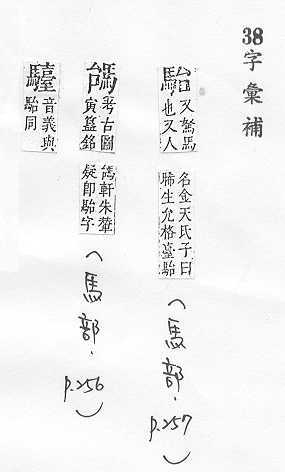 38字彙補
駘 又駑馬
也又人
名金天氏子曰
生允格臺駘
(馬部.p.257)
考古圖
寅簋銘
軒朱
疑卽駘字
(馬部.p.256)
音義與
駘同